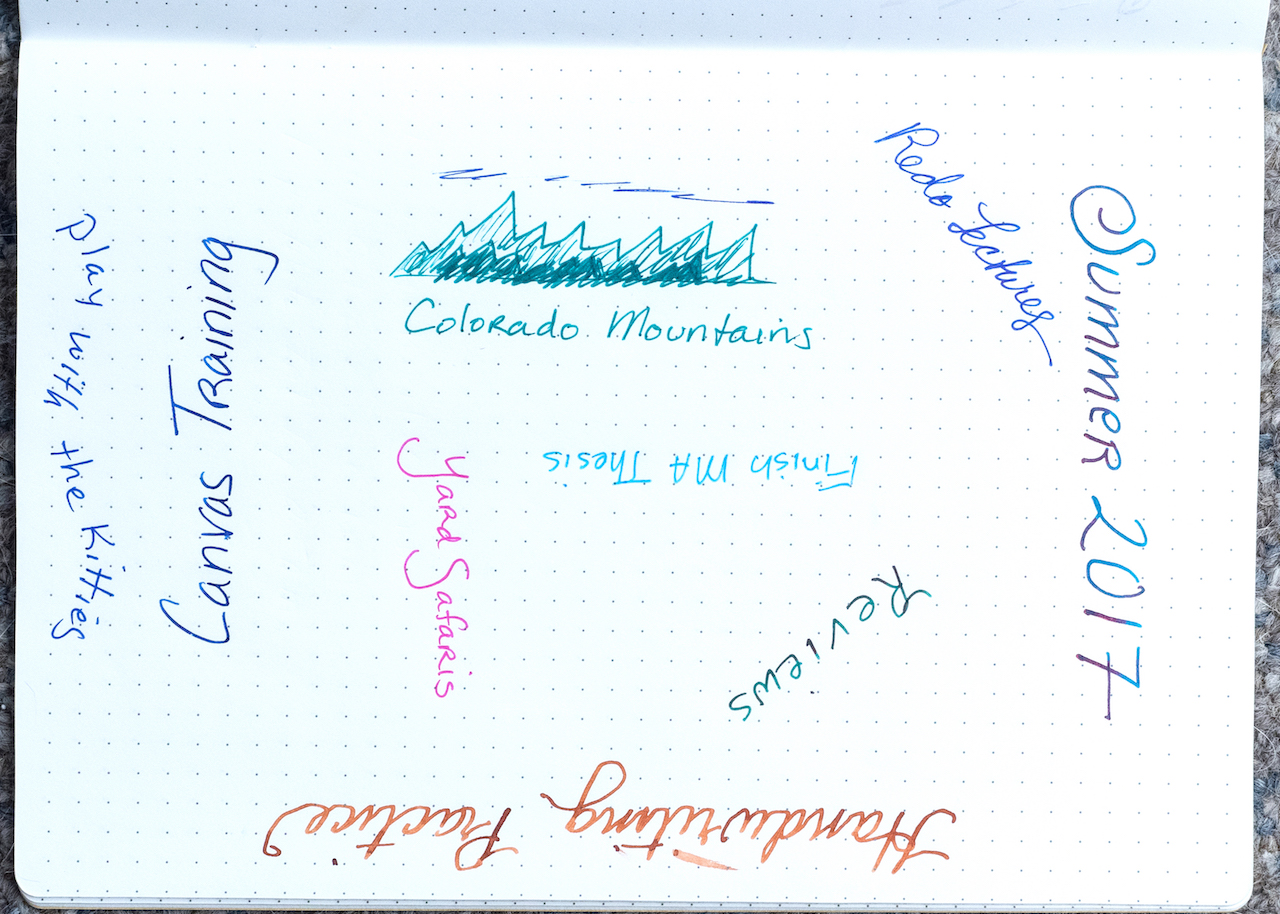 Summer 2017
Redo Lectures
Colorado Mountains
Canvas Training
Play with the Kitties
Yard Safaris
Finish MA Thesis
Reviews
Handwriting Practice